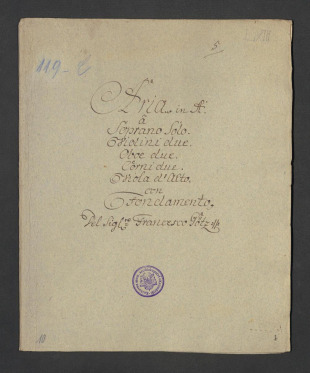 5.
119-
Aria in A.
à
Soprano Solo.
Violini due.
Oboe due.
Corni due.
Viola d'Alto.
con
Fondamento.
Del Sigl: Francesco Götz